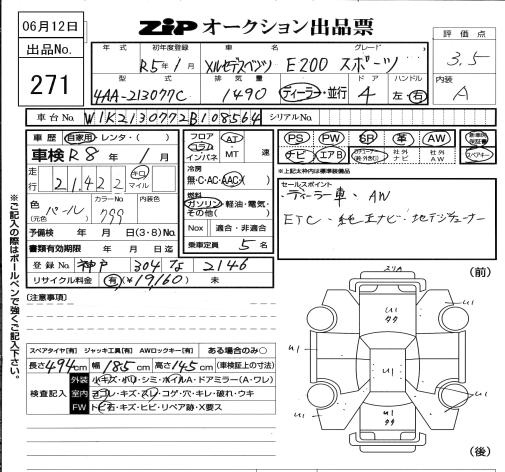 06月12日
出品No.
271
ZIP オークション出品票
評価点
3.5
内装
A
年式 初年度登録 車名 グレード
R5年1月 メルセデスベンツ E200 スポーツ
型式 排気量 ドア ハンドル
4AA-213077C 1490 ディーラー・並行 4 左・右
車台No. W1K2130772B108564 シリアルNo.
車歴 自家用・レンタ・( )
車検 R8年1月
走行 21,422 キロ マイル
色(元色) パール カラーNo. 799 内装色
予備検 年 月 日(3・8)No.
書類有効期限 年 月 日迄
登録No. 神戸 304 な 2146
リサイクル料金 有(¥19,160) 未
フロア コラム インパネ AT・MT 速
冷房 無・C・AC・AAC・( )
燃料 ガソリン・軽油・電気・その他( )
Nox 適合・非適合
乗車定員 5名
PS PW SR 革 AW
ナビ エアB 社外ナビ 社外AW
新車時保証書
スペアキー
※上記太枠内は装備標準装備品
セールスポイント
・ディーラー車・AW
ETC・純正ナビ・地デジチューナー
※ご記入の際はボールペンで強くご記入下さい。
(注意事項)
スペアタイヤ[有] ジャッキ工具[有] AWロックキー[有] ある場合のみ○
長さ494cm 幅185cm 高さ145cm (車検証上の寸法)
検査記入
外装 小キズ・小凹・シミ・ホイルA・ドアミラー(A・ワレ)
室内 ヨゴレ・キズ・スレ・コゲ・穴・キレ・破れ・ウキ
FW トビ石・キズ・ヒビ・リペア跡・X要ス
(前)
スリA
U1
タタ
U1
U1
U1
U1
U1
タタ
U1
(後)